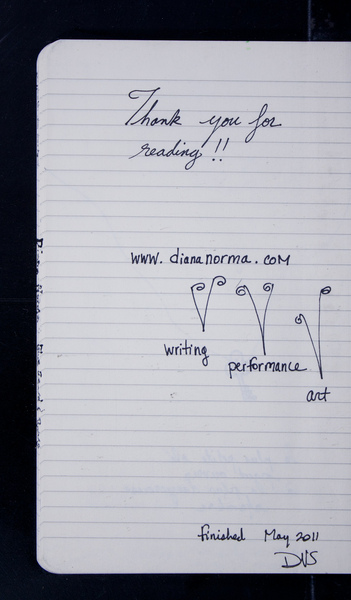 Thank you for
reading!!
www.diananorma.com
writing
performance
art
finished May 2011
DNS